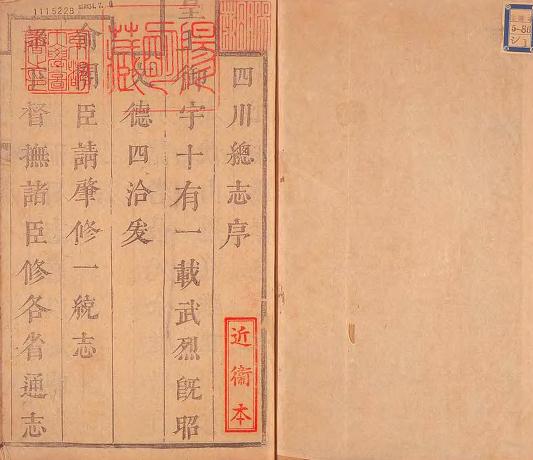 四川總志序
皇御宇十有一載武烈旣昭
文德四洽爰
俞臣請肇修一統志
督撫諸臣修各省通志
近衞本
1115228
5-86
シ1